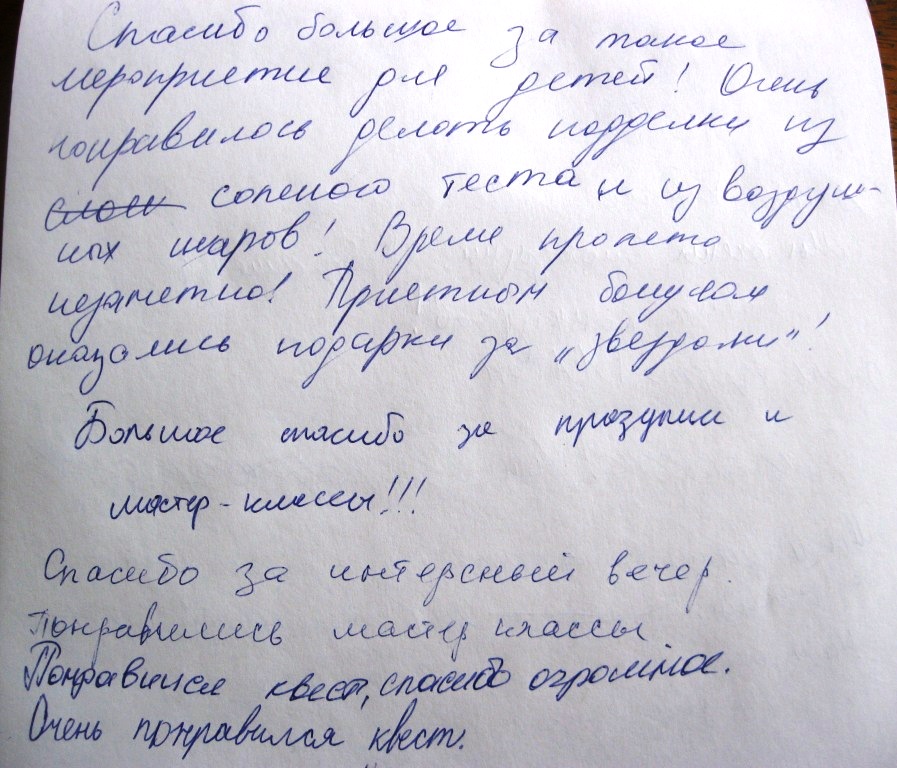 Спасибо большое за такое
мероприятие для детей! Очень
понравилось делатьподделки из
слоен соленого теста и из воздуш-
ных шаров! Время пролетело
незаметно! Приятным бонусом
оказались подарки за „звездочки"!
Большое спасибо за праздник и
мастер-классы!!!
Спасибо за интерсный вечер.
Понравились мастер классы
Понравился квест, спасибо огромное.
Очень понравился квест.